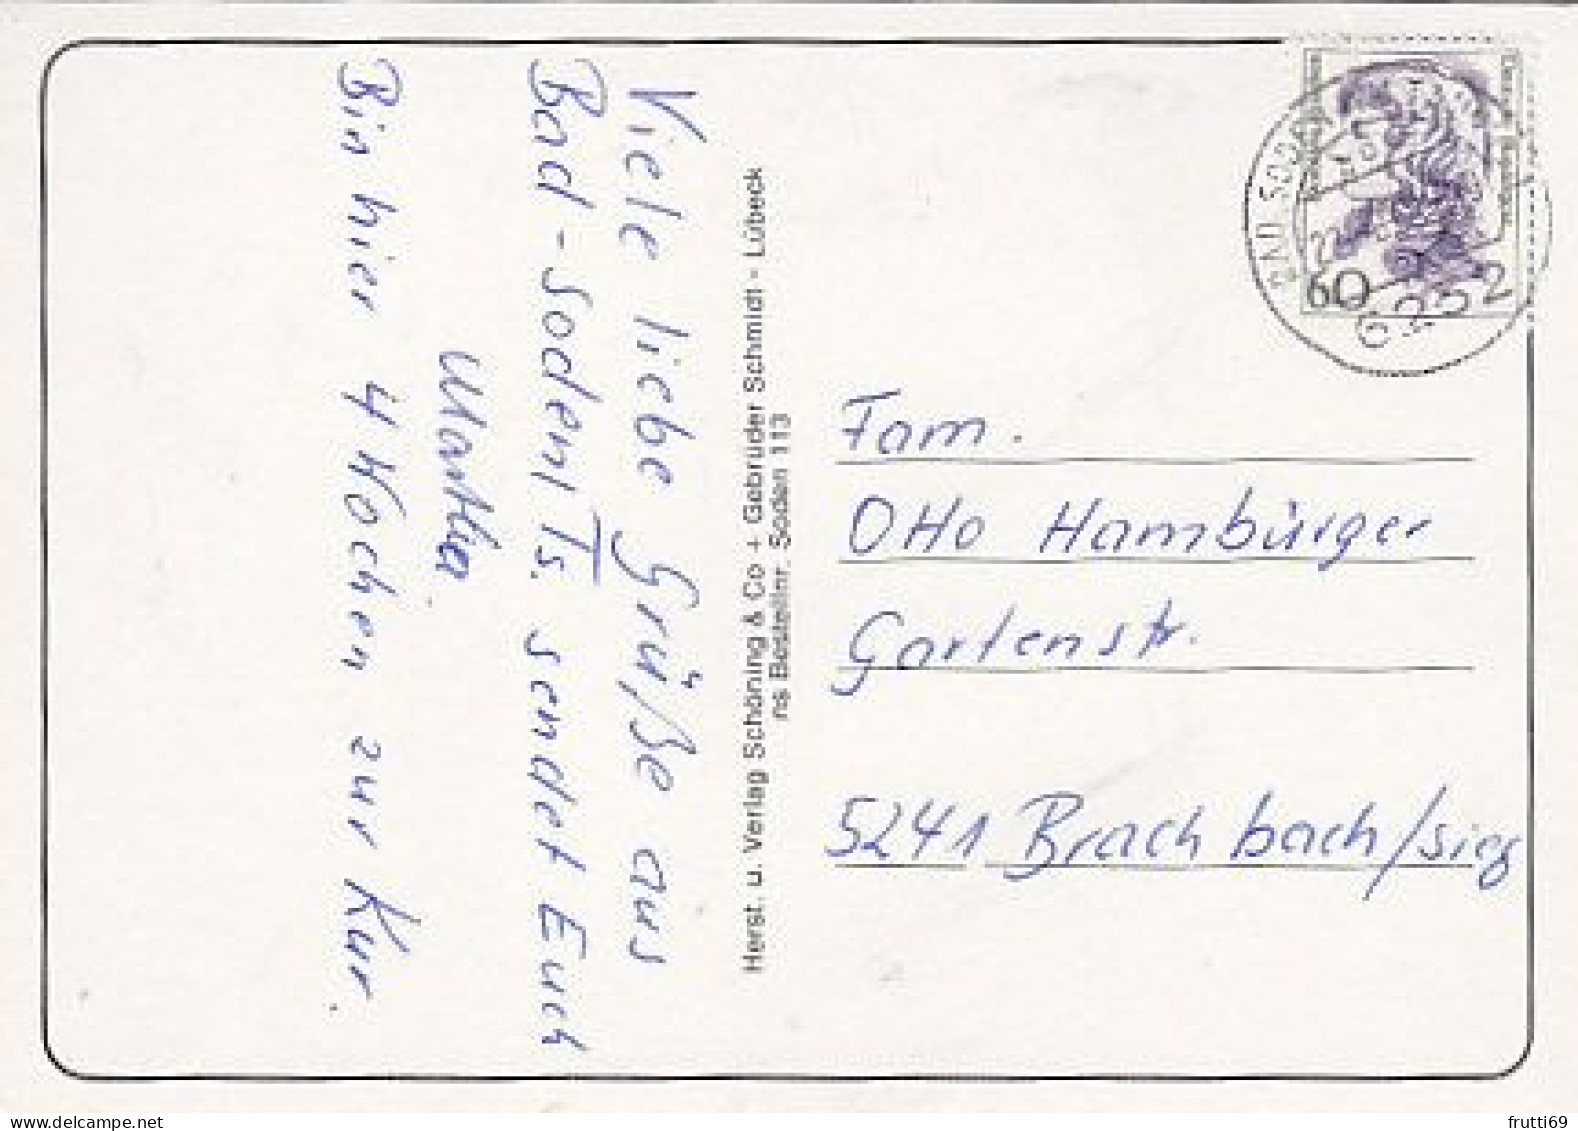 Viele liebe Grüße aus
Bad-Soden/Ts. sendet Euch
Martha
Bin hier 4 Wochen zur Kur.
Herst. u. Verlag Schöning & Co + Gebrüder Schmidt - Lübeck
ns Bestellnr. Soden 113
60
BAD SODEN
6232
Fam.
Otto Hambürger
Gartenstr.
5241 Brachbach/Sieg
frutti69